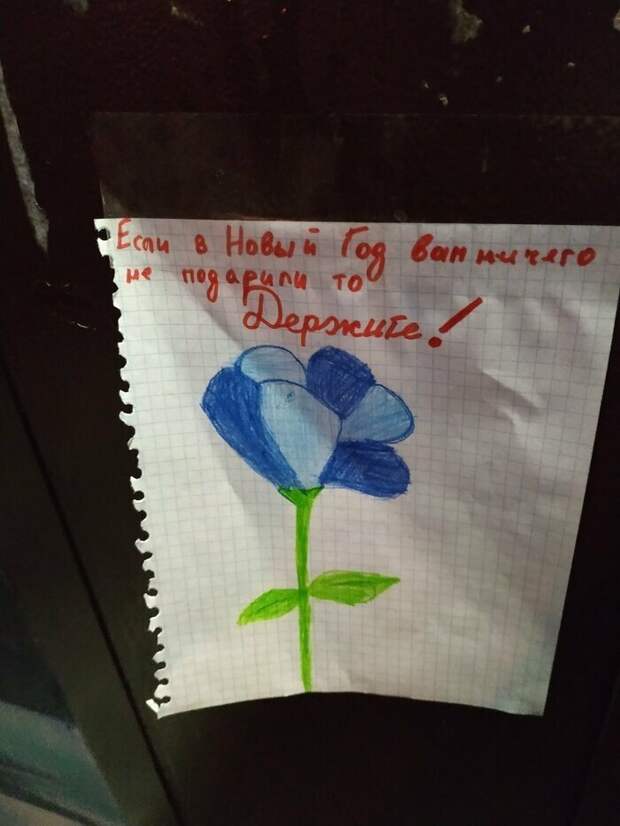 Если в Новый Год вам ничего
не подарили то
Держите!